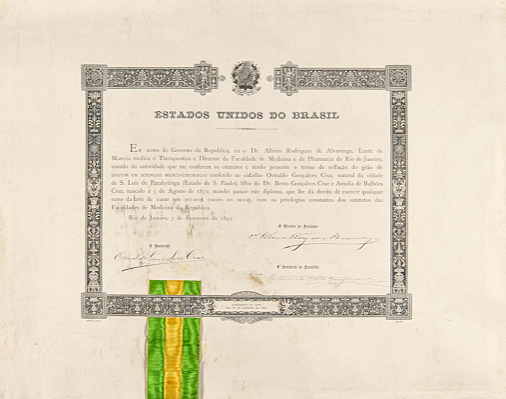 ESTADOS UNIDOS DO BRASIL
Em nome do Governo da Republica, eu o Dr. Albino Rodrigues de Alvarenga, Lente de
Materia medica e Therapeutica e Director da Faculdade de Medicina e de Pharmacia do Rio de Janeiro,
usando da autoridade que me conferem os estatutos e tendo presente o termo de collação do gráo de
DOUTOR EM SCIENCIAS MEDICO-CIRURGICAS conferido ao cidadão Oswaldo Gonçalves Cruz, natural da cidade
de S. Luiz de Parahytinga (Estado de S. Paulo), filho do Dr. Bento Gonçalves Cruz e Amelia de Bulhões
Cruz, nascido á 5 de Agosto de 1872, mandei passar este diploma, que lhe dá direito de exercer qualquer
ramo da arte de curar nos ESTADOS UNIDOS DO BRASIL, com os privilegios constantes dos estatutos das
Faculdades de Medicina da Republica.
Rio de Janeiro, 2 de Fevereiro de 1893.
O Director da Faculdade
O Doutorado
Oswaldo Gonçalves Cruz
O Secretario da Faculdade